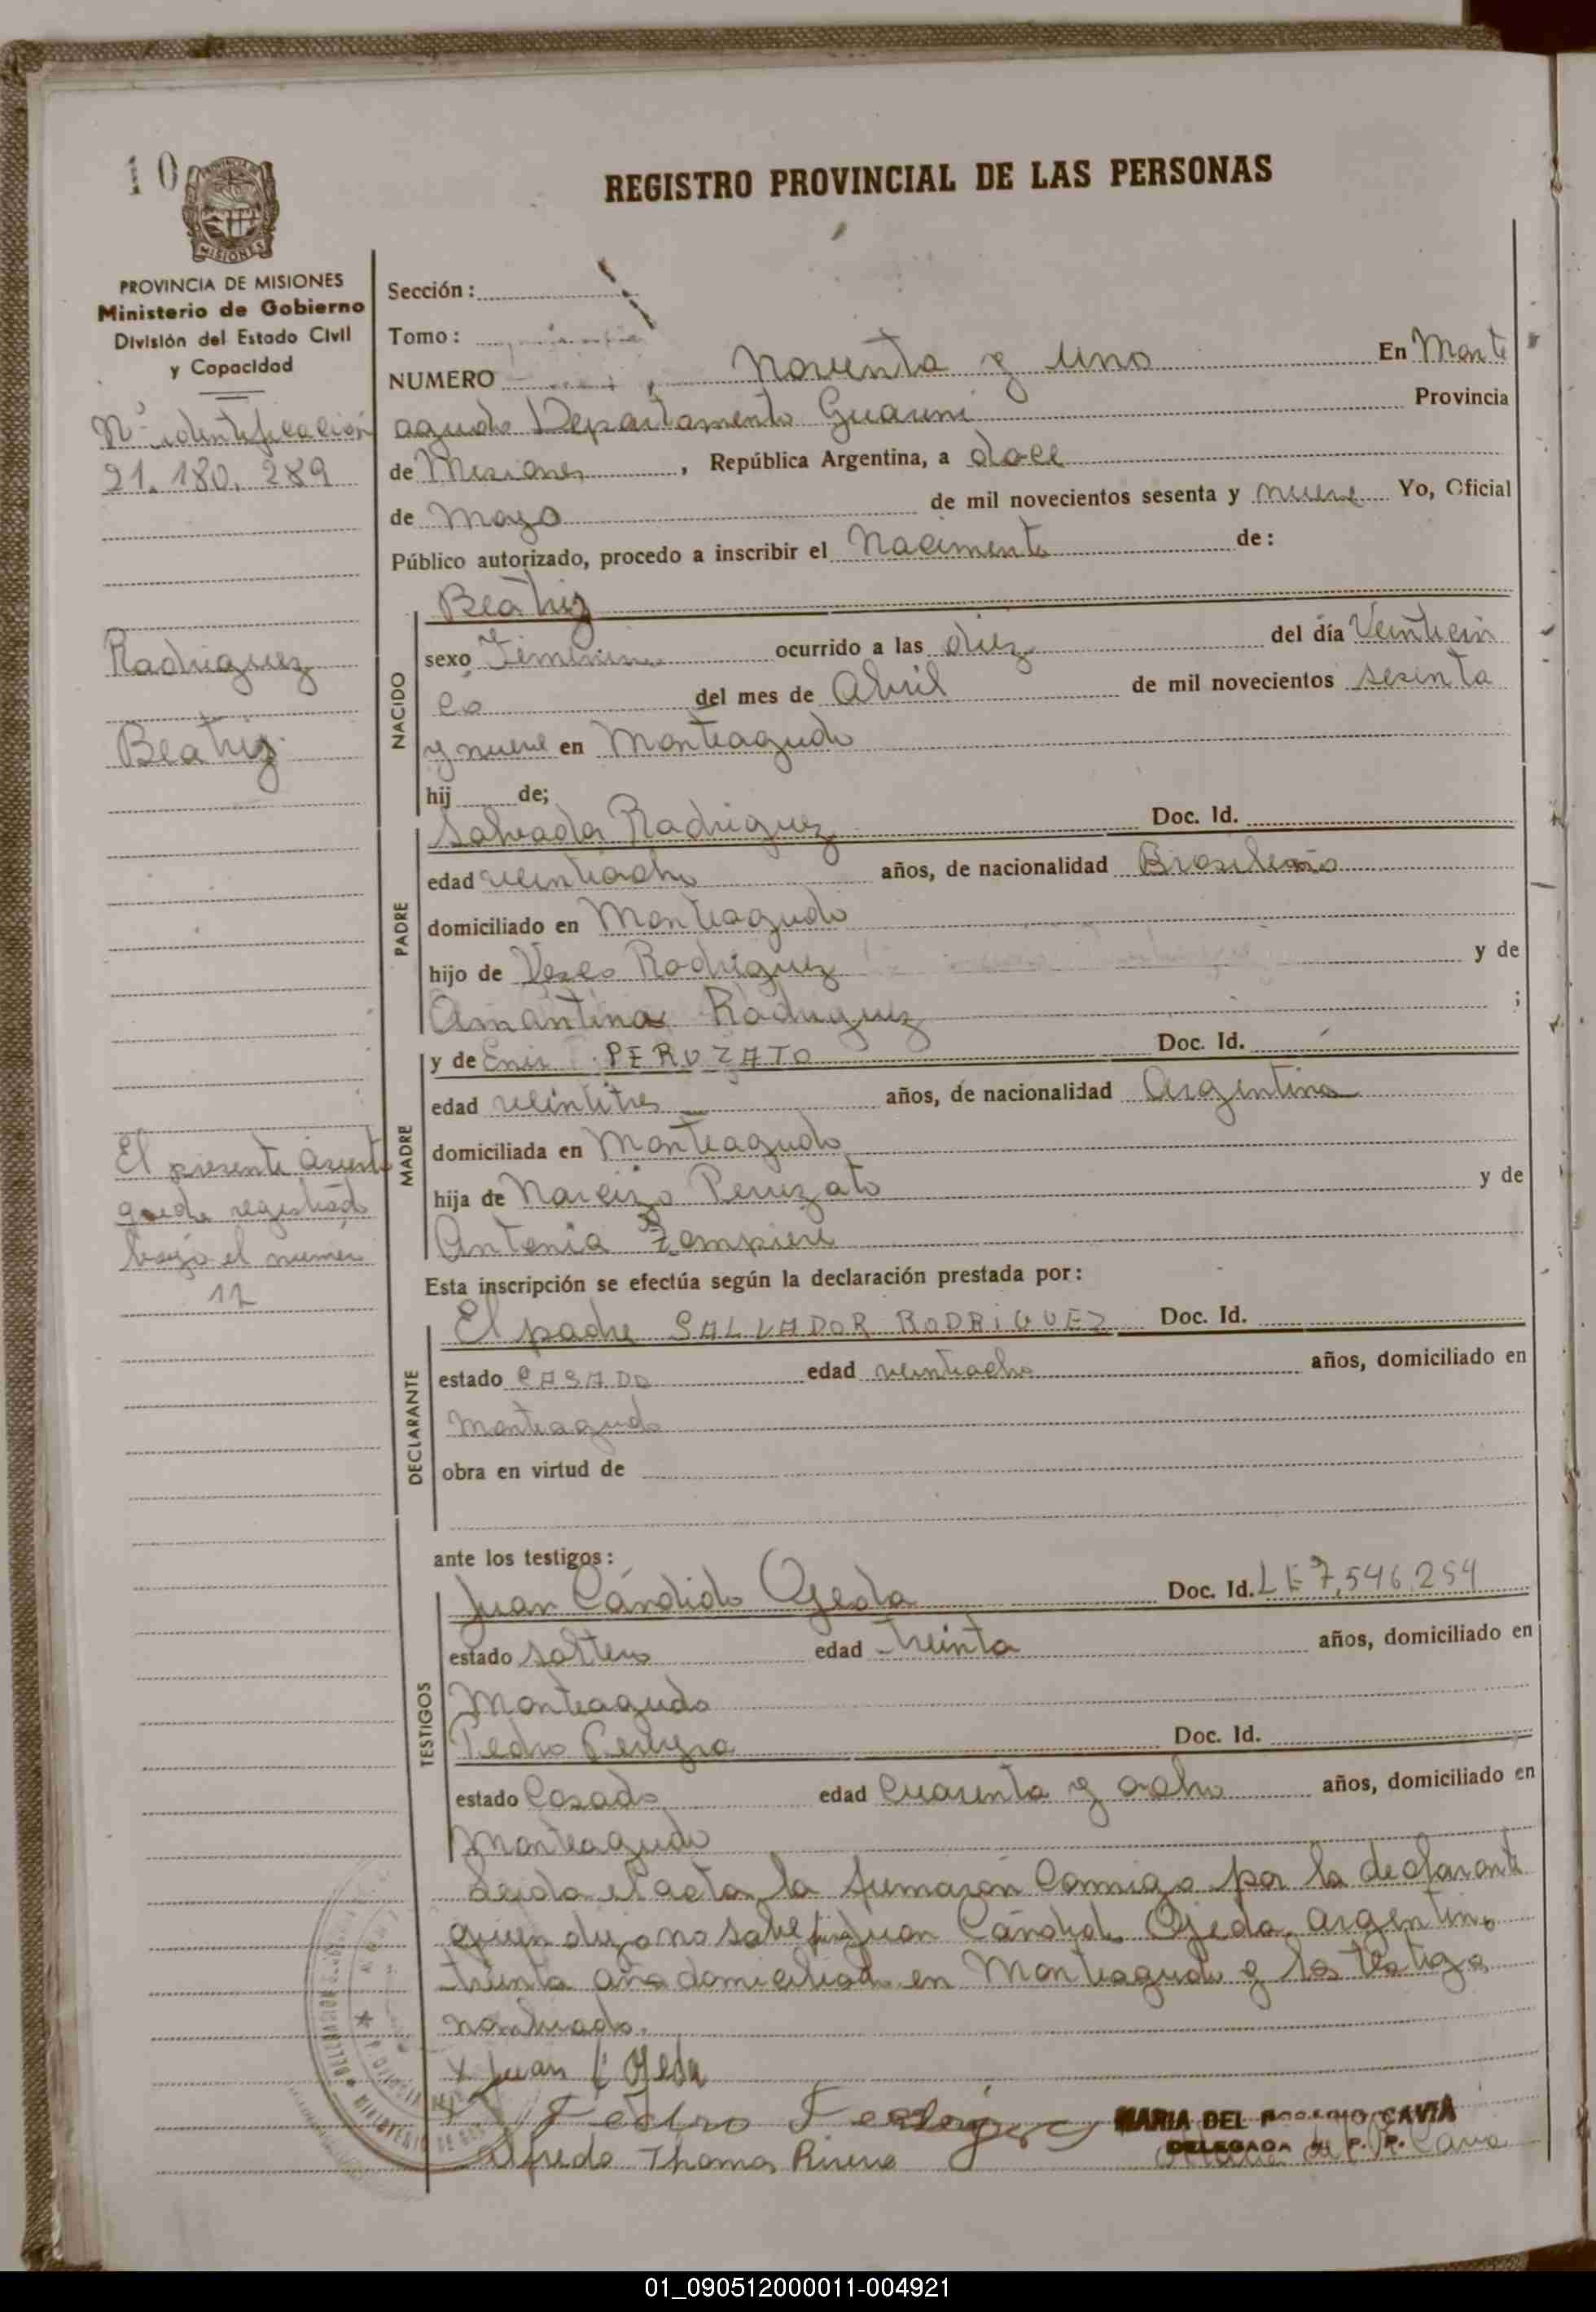 10
REGISTRO PROVINCIAL DE LAS PERSONAS
MISIONES
PROVINCIA DE MISIONES
Ministerio de Gobierno
División del Estado Civil
y Capacidad
Nº identificación
21.180.289
Rodriguez
Beatriz
El presente Asiento
queda registrado
bajo el numero
12
Sección:
Tomo:
NUMERO Noventa y Uno En Monte
agudo Departamento Guarani Provincia
de Misiones, República Argentina, a doce
de Mayo de mil novecientos sesenta y nueve Yo, Oficial
Público autorizado, procedo a inscribir el Nacimento de:
NACIDO
Beatriz
sexo Femenino ocurrido a las diez del día Veinticin
co del mes de Abril de mil novecientos sesenta
y nueve en Monteagudo
hij de;
PADRE
Salvador Rodriguez Doc. Id.
edad veintiocho años, de nacionalidad Brasileño
domiciliado en Monteagudo
hijo de Rodriguez y de
Amantina Rodriguez ;
MADRE
y de Enir PERUZATO Doc. Id.
edad veintitres años, de nacionalidad Argentina
domiciliada en Monteagudo
hija de Narcizo Peruzato y de
Antonia Zampieri
Esta inscripción se efectúa según la declaración prestada por:
DECLARANTE
El padre SALVADOR RODRIGUEZ Doc. Id.
estado CASADO edad veintiocho años, domiciliado en
Monteagudo
obra en virtud de
ante los testigos:
TESTIGOS
Juan Cándido Ojeda Doc. Id. LE 7,546,254
estado soltero edad treinta años, domiciliado en
Monteagudo
Pedro Doc. Id.
estado Casado edad Cuarenta y ocho años, domiciliado en
Monteagudo
Leida el acta la firmaron Conmigo por la declarante
quien dijo no saber Juan Cándido Ojeda, argentino
treinta años domiciliado en Monteagudo y los testigos
nombrado.
x Juan C Ojeda
Pedro
Alfredo Thomas
MARIA DEL ROSARIO CAVIA
DELEGADA R. P. P.
01_090512000011-004921